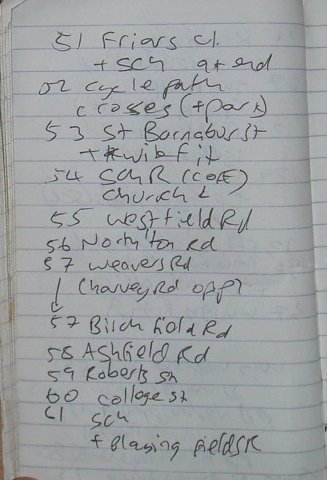 51 Friars Cl.
+ sch at end
52 cycle path
crosses (+park)
53 St Barnabus St
+
54 Sch R (COE)
church L
55 Westfield Rd
56 Northton Rd
57 Weavers Rd
(Harvey Rd opp)
57 Birchfield Rd
58 Ashfield Rd
59 Roberts St
60 college st
61 sch
+ playing fields R